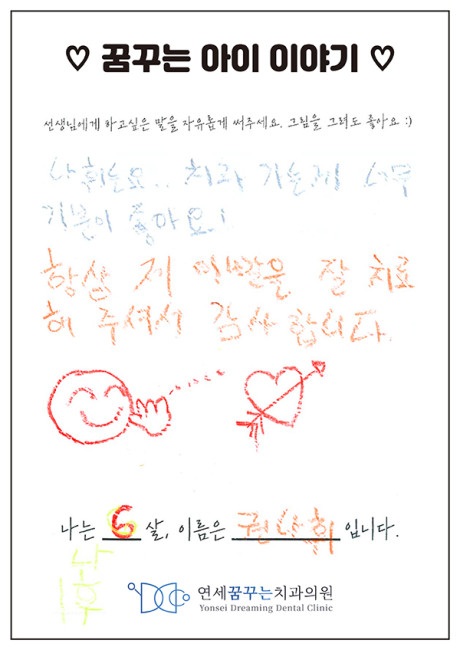 ♡ 꿈꾸는 아이 이야기 ♡
선생님에게 하고싶은 말을 자유롭게 써주세요. 그림을 그려도 좋아요 :)
나휘는요.. 치과 가는게 너무
기분이 좋아요!
항상 저 이빨을 잘 치료
해 주셔서 감사 합니다.
나는 6 살, 이름은 권나휘 입니다.
연세꿈꾸는치과의원
Yonsei Dreaming Dental Clinic